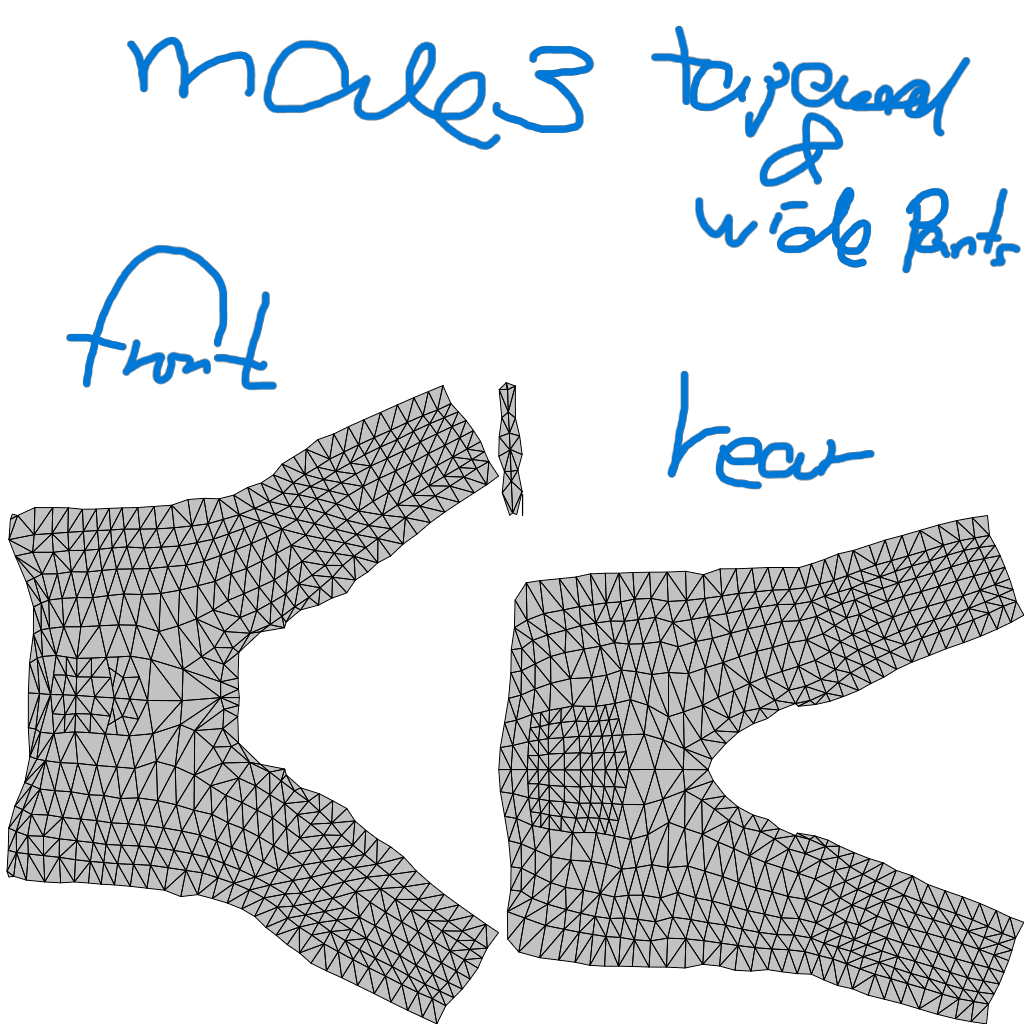 male3 tapered
&
wide Pants
front
rear